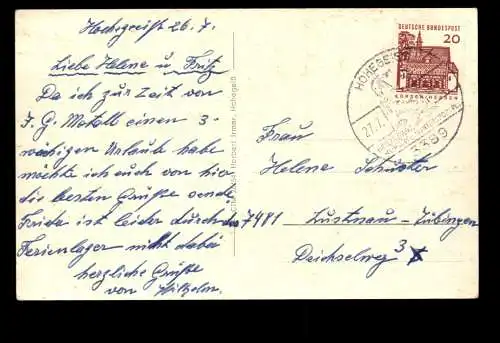 Hohegeiß 26.7.
Liebe Helene u. Fritz
Da ich zur Zeit von
I. G. Metall einen 3-
wöchigen Urlaub habe
möchte ich euch von hier
die besten Grüße senden
Frieda ist leider durch das
Ferienlager nicht dabei
herzliche Grüße
von Wilhelm.
Herbert Irmer, Hohegeiß
DEUTSCHE BUNDESPOST
20
LORSCH/HESSEN
HOHEGEISS
27.7.
3389
Frau
Helene Schuster
7481 Lustnau-Tübingen
Deichselweg 3